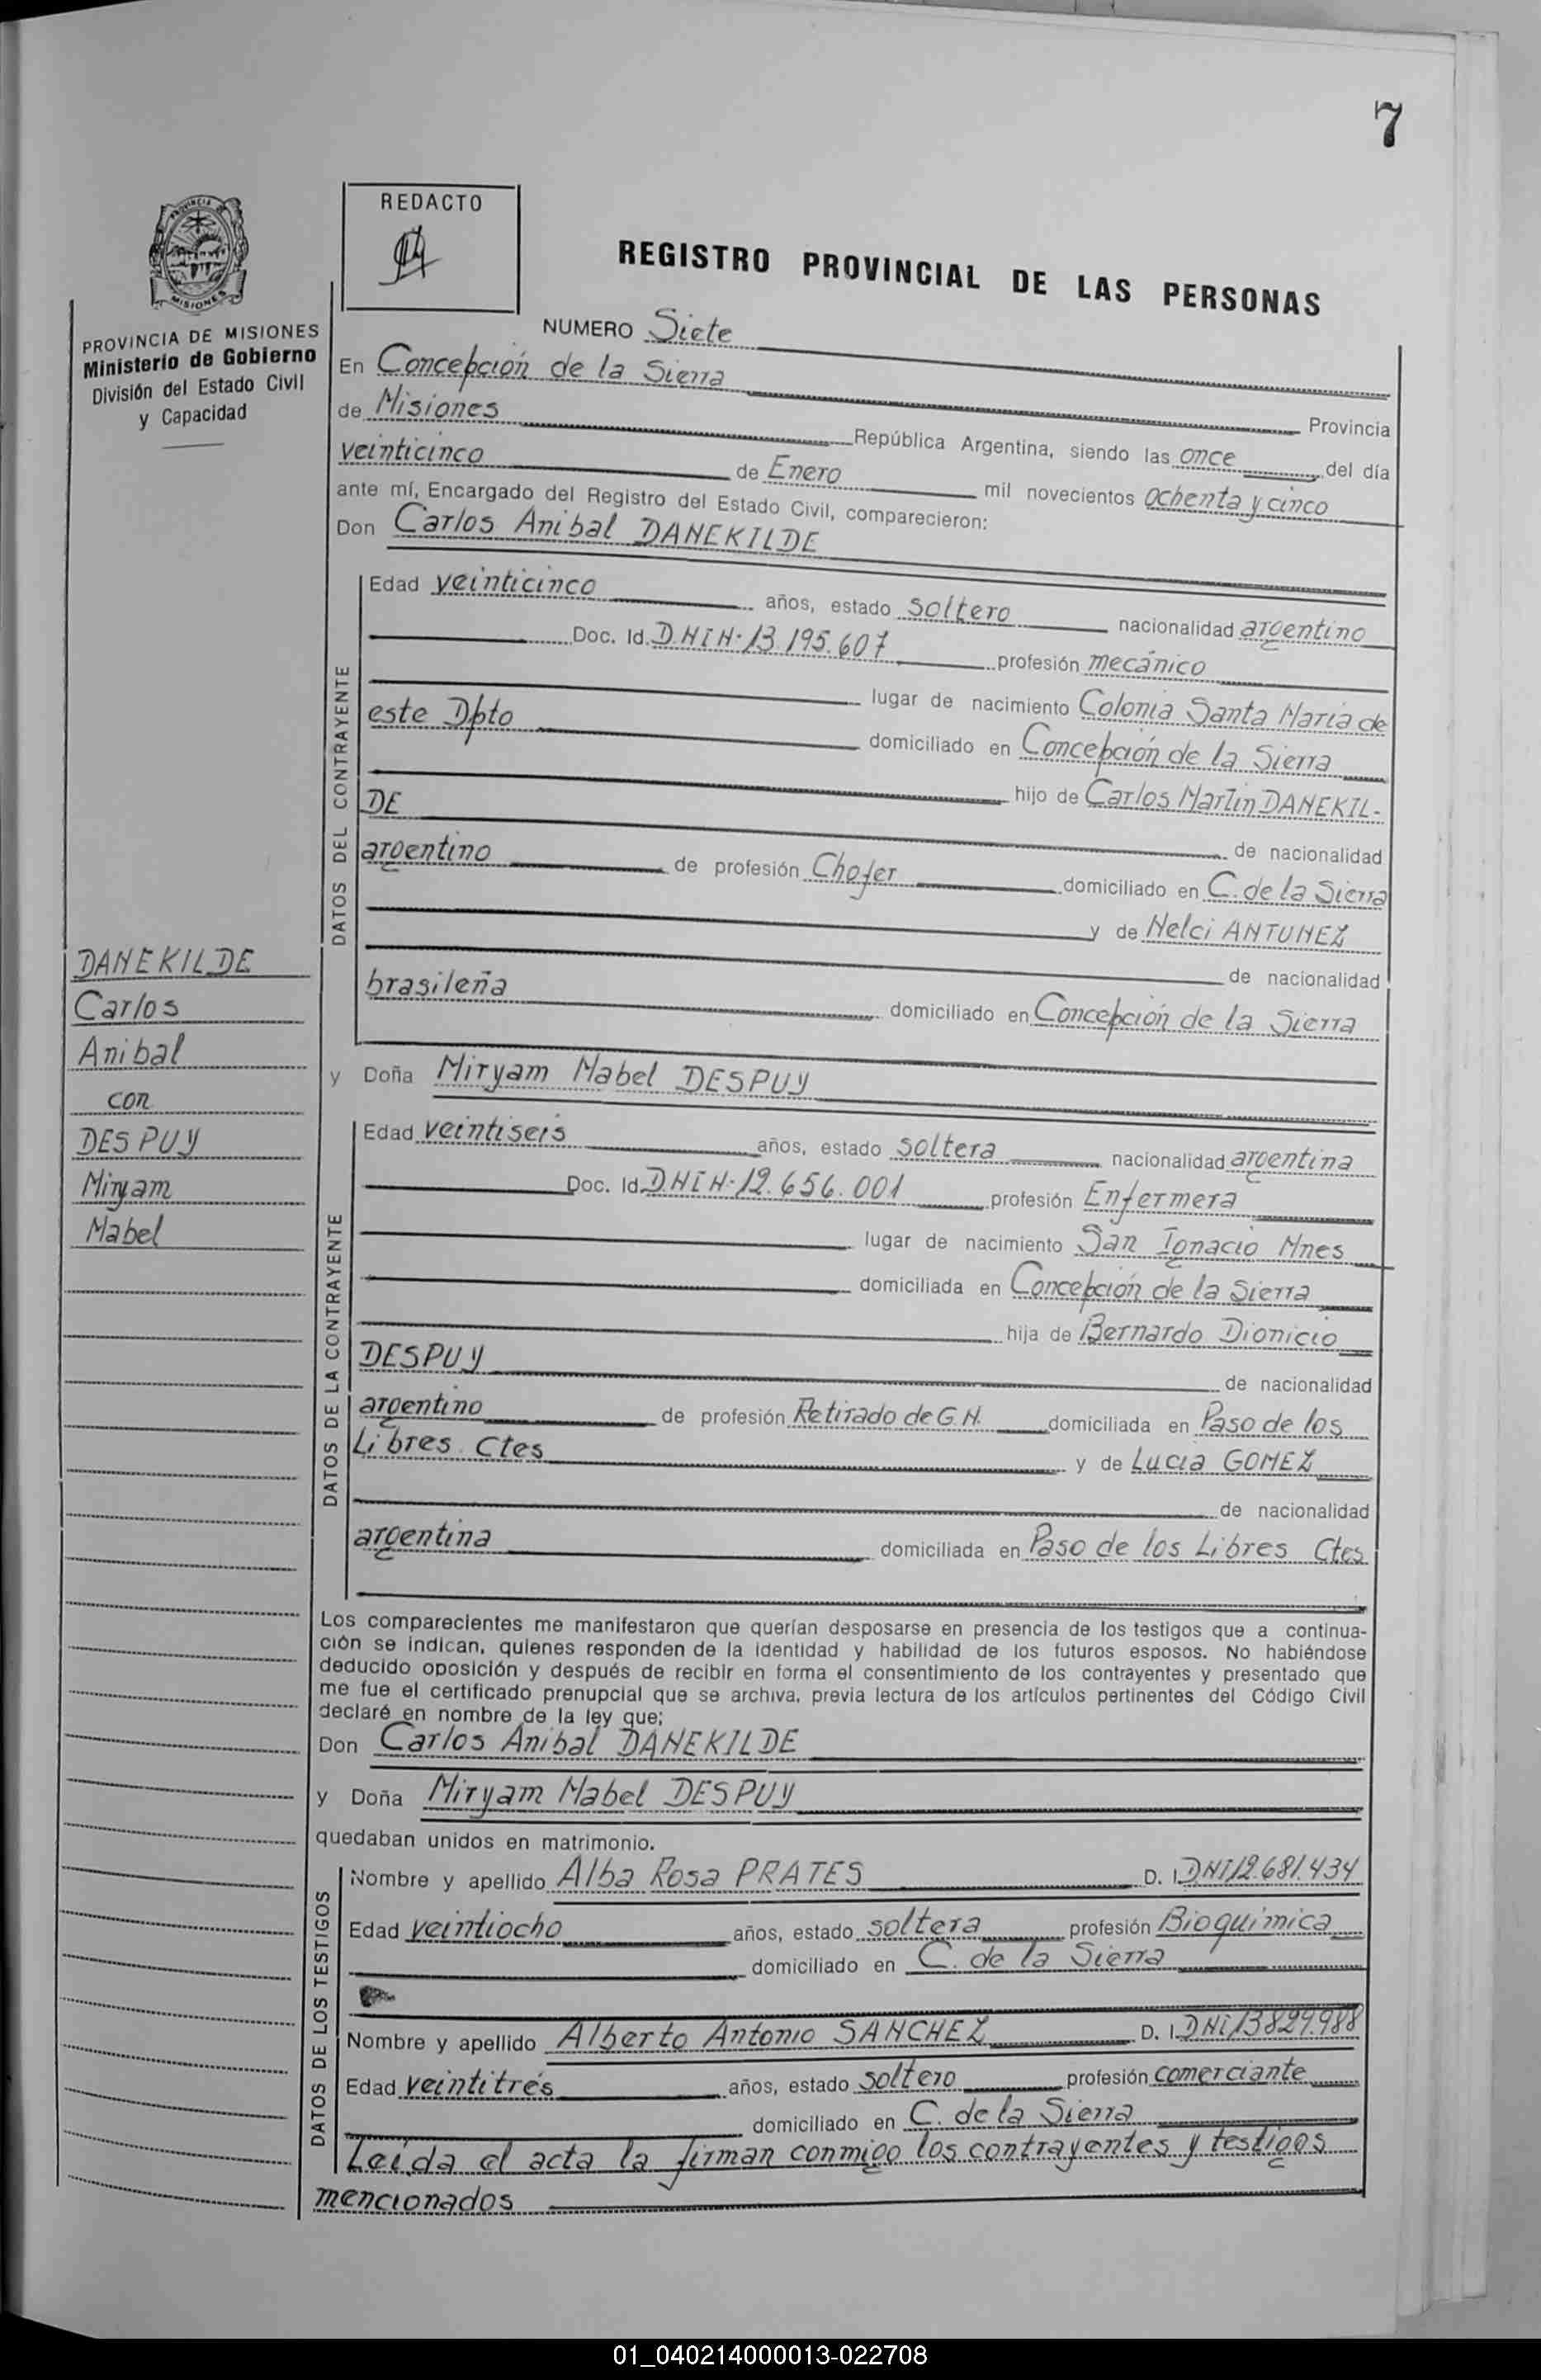 7
REDACTO
PROVINCIA
MISIONES
REGISTRO PROVINCIAL DE LAS PERSONAS
PROVINCIA DE MISIONES
Ministerio de Gobierno
División del Estado Civil
y Capacidad
NUMERO Siete
En Concepción de la Sierra Provincia
de Misiones República Argentina, siendo las once del día
veinticinco de Enero mil novecientos ochenta y cinco
ante mí, Encargado del Registro del Estado Civil, comparecieron:
Don Carlos Anibal DANEKILDE
DATOS DEL CONTRAYENTE
Edad veinticinco años, estado soltero nacionalidad argentino
Doc. Id. D.N.I.N. 13.195.607 profesión mecánico
lugar de nacimiento Colonia Santa Maria de
este Dpto domiciliado en Concepción de la Sierra
hijo de Carlos Martin DANEKIL-
DE de nacionalidad
argentino de profesión Chofer domiciliado en C. de la Sierra
y de Nelci ANTUNEZ
de nacionalidad
brasileña domiciliado en Concepción de la Sierra
DANEKILDE
Carlos
Anibal
con
DESPUY
Miryam
Mabel
y Doña Miryam Mabel DESPUY
DATOS DE LA CONTRAYENTE
Edad veintiseis años, estado soltera nacionalidad argentina
Doc. Id. D.N.I.N. 12.656.001 profesión Enfermera
lugar de nacimiento San Ignacio Mnes
domiciliada en Concepción de la Sierra
hija de Bernardo Dionicio
DESPUY de nacionalidad
argentino de profesión Retirado de G.N. domiciliada en Paso de los
Libres Ctes y de Lucia GOMEZ
de nacionalidad
argentina domiciliada en Paso de los Libres Ctes
Los comparecientes me manifestaron que querían desposarse en presencia de los testigos que a continua-
ción se indican, quienes responden de la identidad y habilidad de los futuros esposos. No habiéndose
deducido oposición y después de recibir en forma el consentimiento de los contrayentes y presentado que
me fue el certificado prenupcial que se archiva, previa lectura de los artículos pertinentes del Código Civil
declaré en nombre de la ley que;
Don Carlos Anibal DANEKILDE
y Doña Miryam Mabel DESPUY
quedaban unidos en matrimonio.
DATOS DE LOS TESTIGOS
Nombre y apellido Alba Rosa PRATES D. I. DNI 12.681.434
Edad veintiocho años, estado soltera profesión Bioquimica
domiciliado en C. de la Sierra
Nombre y apellido Alberto Antonio SANCHEZ D. I. DNI 13829.988
Edad veintitrés años, estado soltero profesión comerciante
domiciliado en C. de la Sierra
Leída el acta la firman conmigo los contrayentes y testigos
mencionados
01_040214000013-022708